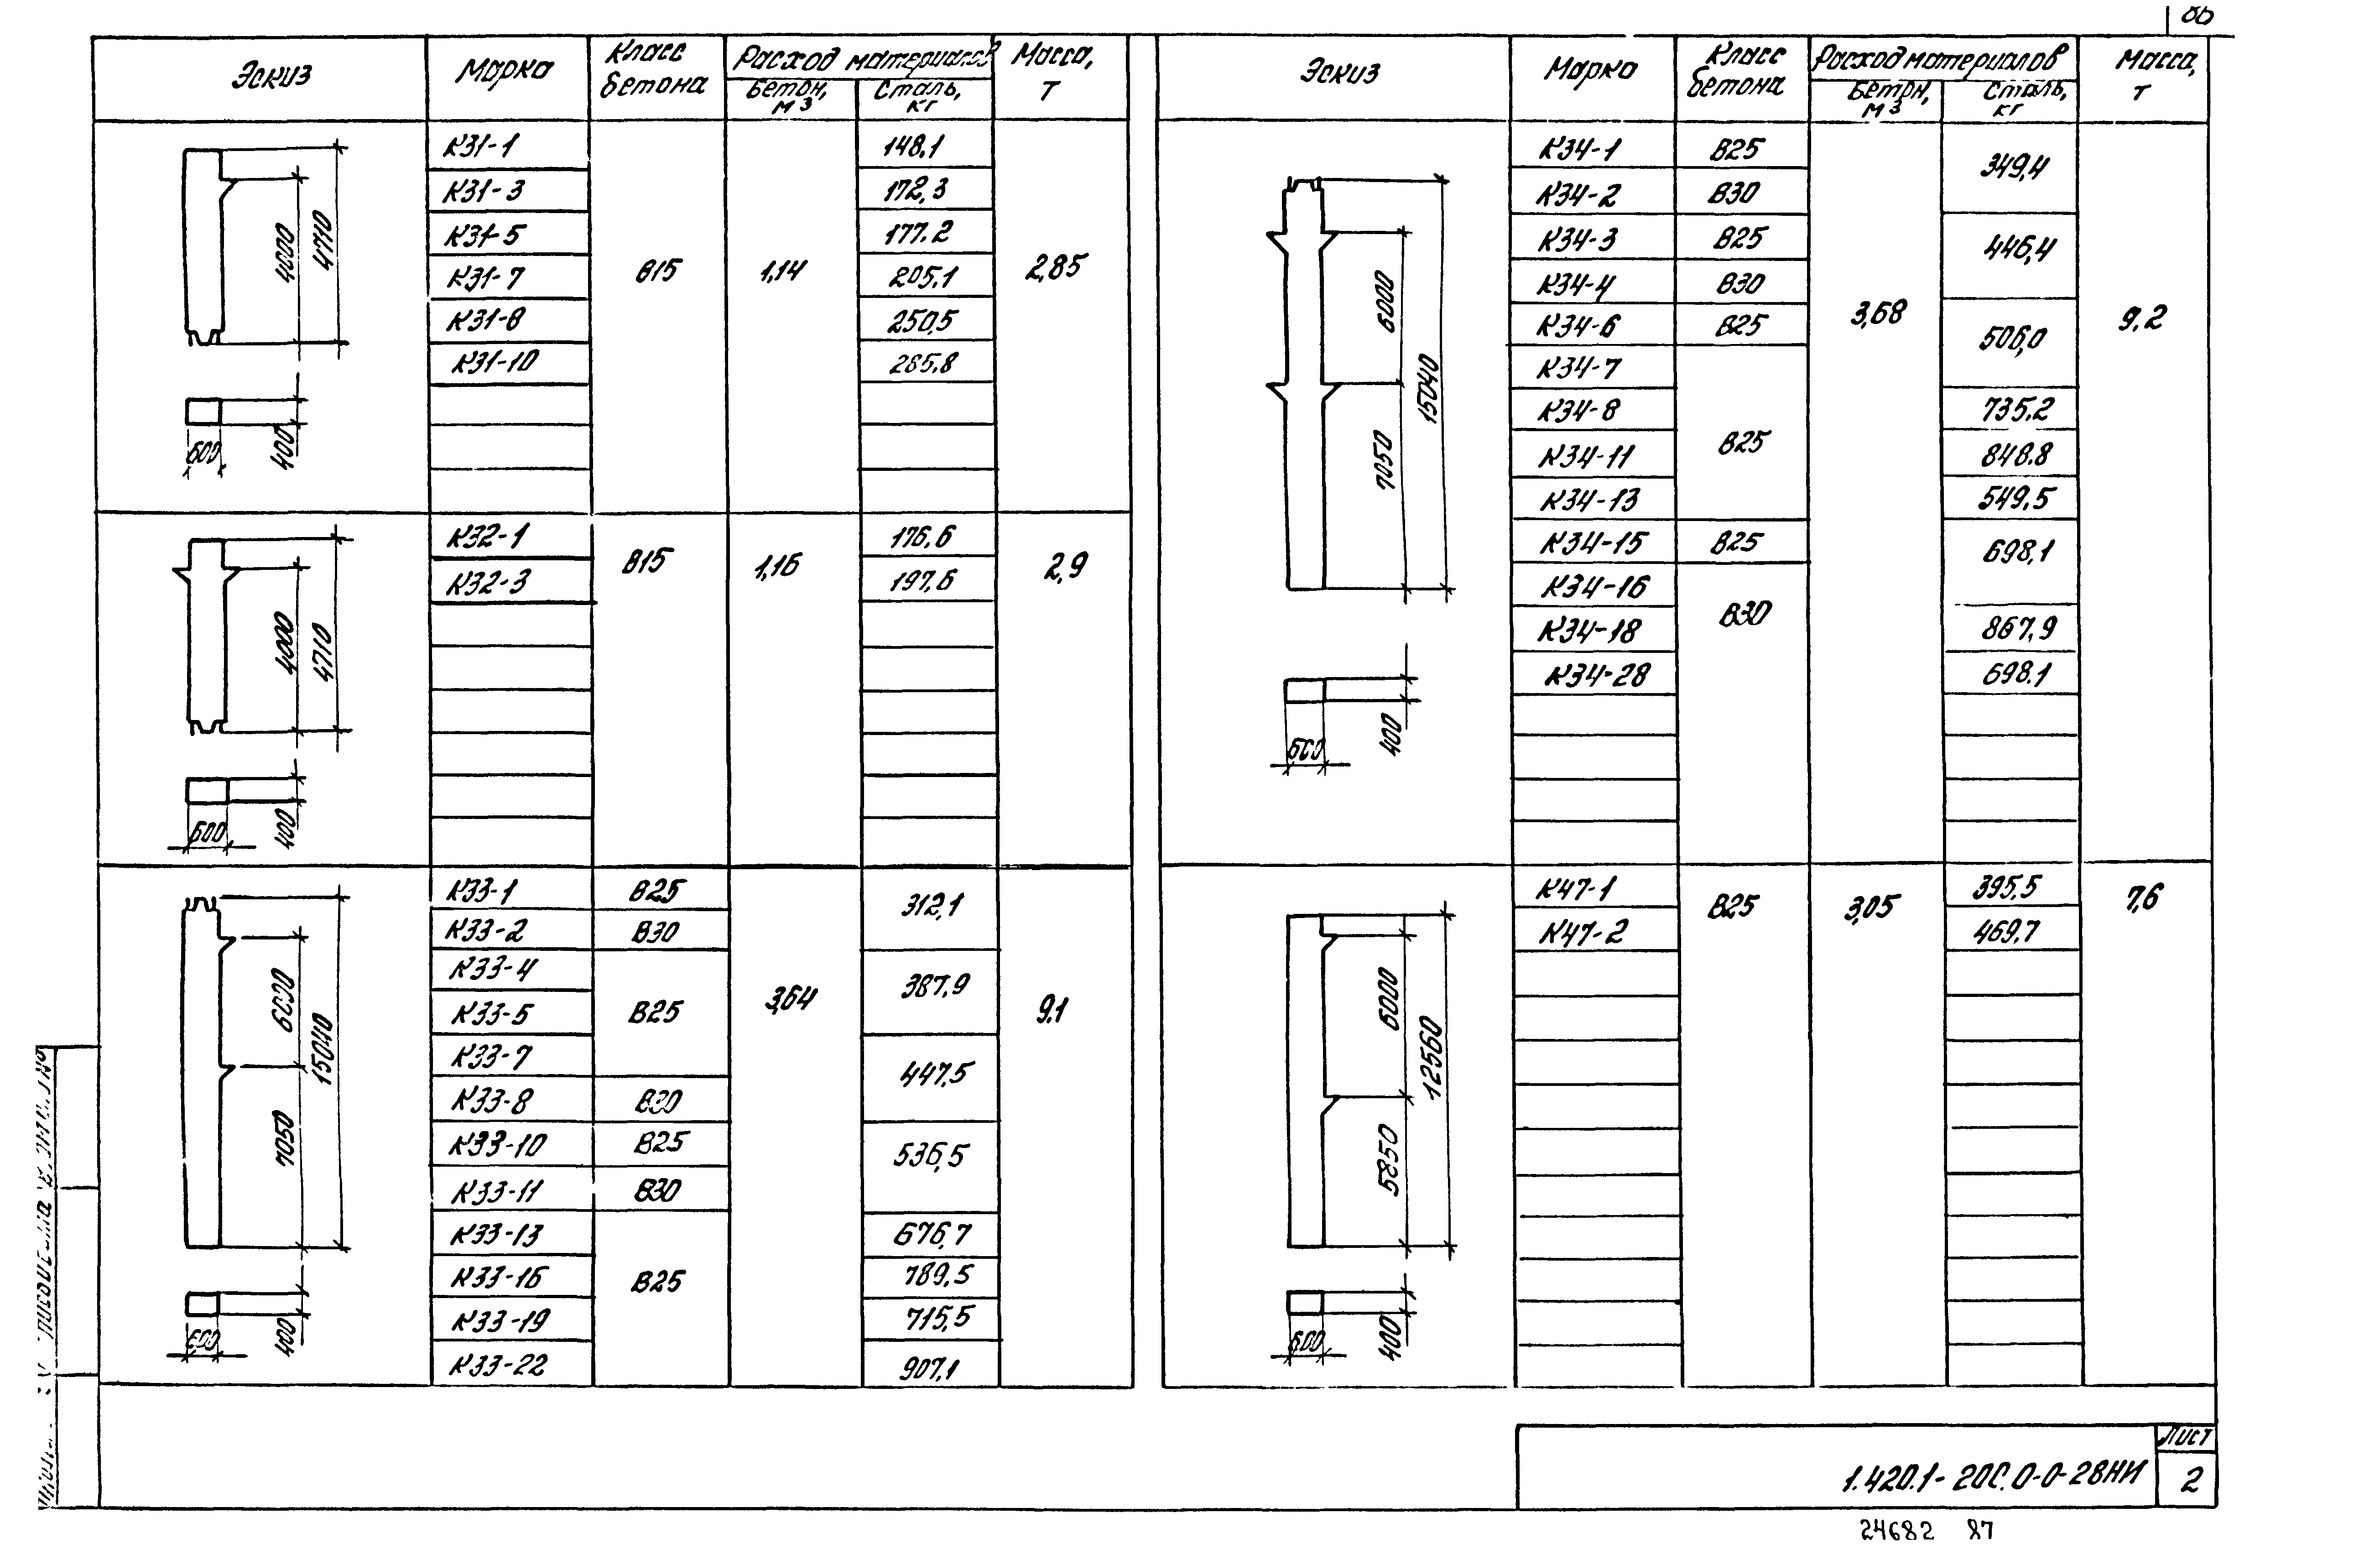 86
Эскиз Марка Класс бетона Расход материалов Масса, т
Бетон, м3 Сталь, кг
К31-1 148,1
К31-3 172,3
К31-5 177.2
К31-7 В15 1,14 205,1 2,85
К31-8 250,5
К31-10 285,8
4000 4710
600 400
К32-1 176,6
К32-3 В15 1,16 197,6 2,9
4000 4710
600 400
К33-1 В25 312,1
К33-2 В30
К33-4 387,9
К33-5 В25 3,64 9,1
К33-7 447,5
К33-8 В30
К33-10 В25 536,5
К33-11 В30
К33-13 676,7
К33-16 В25 789,5
К33-19 715,5
К33-22 907,1
6000 7050 15040
600 400
Эскиз Марка Класс бетона Расход материалов Масса, т
Бетон, м3 Сталь, кг
К34-1 В25 349,4
К34-2 В30
К34-3 В25 446,4
К34-4 В30 3,68 9,2
К34-6 В25 506,0
К34-7
К34-8 735,2
К34-11 В25 848.8
К34-13 549,5
К34-15 В25 698,1
К34-16 В30
К34-18 867,9
К34-28 698.1
6000 7050 15040
600 400
К47-1 В25 3,05 395,5 7,6
К47-2 469,7
6000 5850 12560
600 400
1.420.1-20С.0-0-28НИ
Лист
2
24682 87